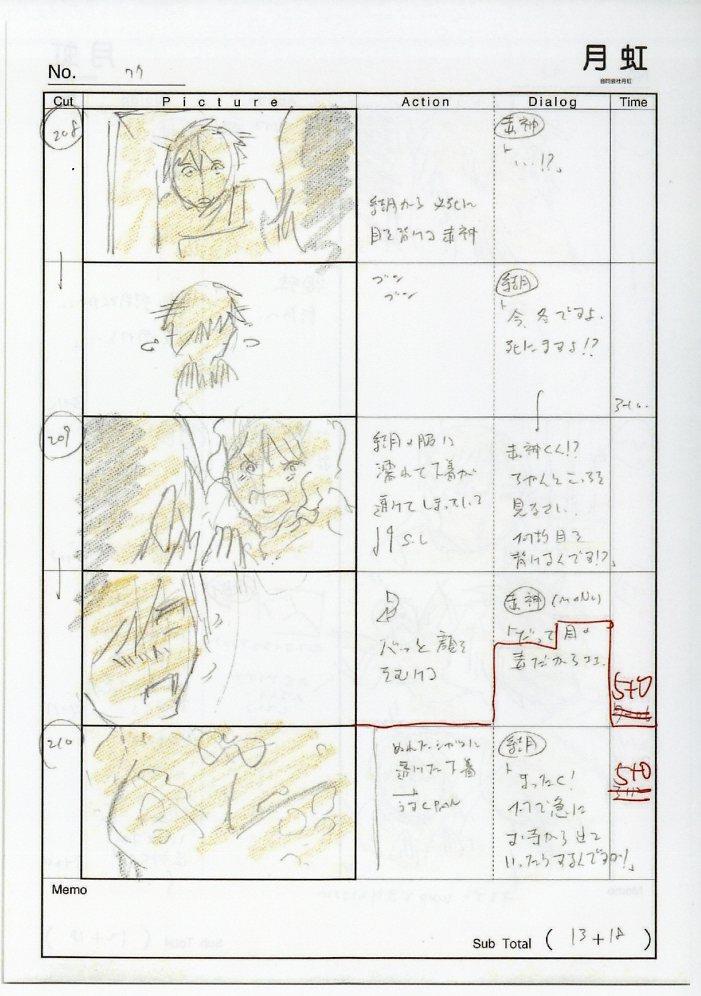 月虹
No. 77
Cut Picture Action Dialog Time
208
赤神
「…!?」
結月から必死に
目を背ける赤神
ブン
ブン
結月
「今、冬ですよ、
死にますよ!?
209
結月の服は
濡れて下着が
透けてしまっている
赤神くん!?
ちゃんところを
見なさい
何故目を
背けるんです!?」
バッと顔を
そむける
赤神 (MONO)
「だって 目の
毒だから
5+0
210
ぬれたシャツに
透けた下着
うすくPAN
結月
「まったく!
何で急に
お寺から出て
いったりするんですか!」
5+0
Memo
Sub Total ( 13+18 )